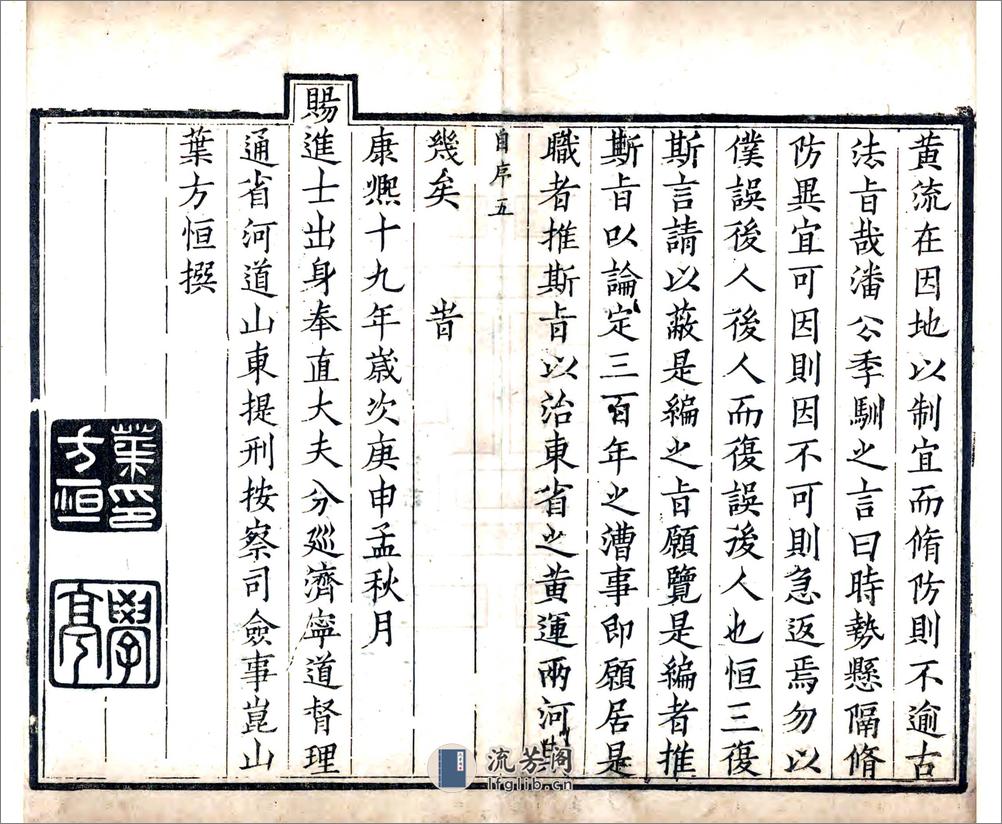 黄流在因地以制宜而脩防則不逾古
法旨哉潘公季馴之言曰時勢懸隔脩
防異宜可因則因不可則急返焉勿以
僕誤後人後人而復誤後人也恒三復
斯言請以蔽是編之旨願覽是編者推
斯旨以論定三百年之漕事即願居是
職者推斯旨以治東省之黄運兩河
自序五
幾矣 旹
康熙十九年歲次庚申孟秋月
賜進士出身奉直大夫分廵濟寧道督理
通省河道山東提刑按察司僉事崑山
葉方恒撰
葉方恒印
學亭
流芳閣
lfglib.cn